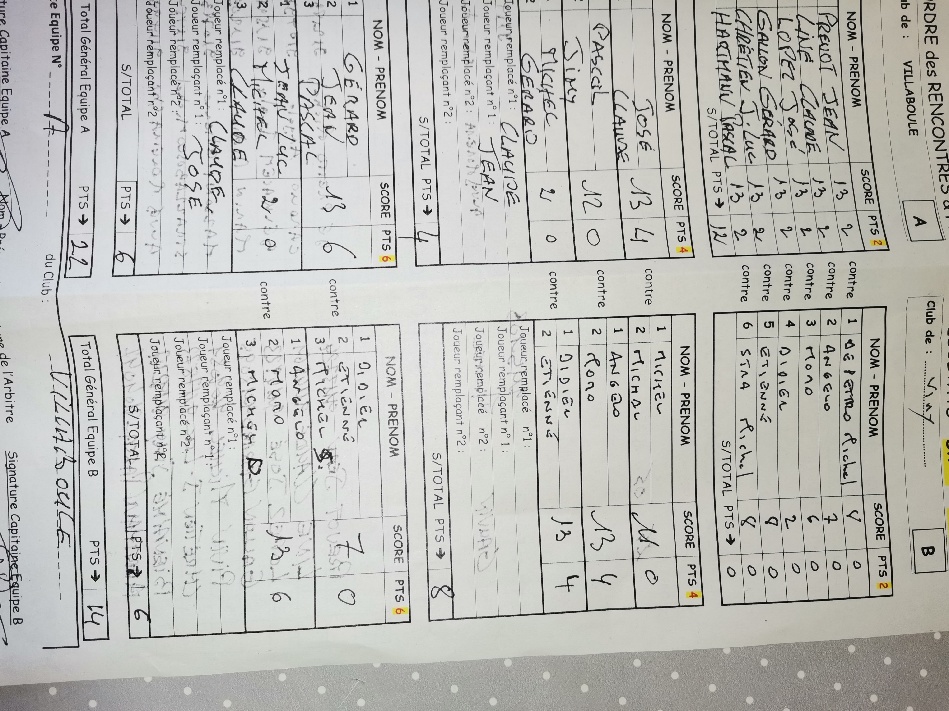 ORDRE des RENCONTRES
Club de : VILLABOULE A
NOM - PRENOM SCORE PTS 2
JEAN 13 2
LINE CLAUDE 13 2
LOPEZ José 13 2
GALLON GERARD 13 2
CHRÉTIEN J. Luc 13 2
HARTMANN PASCAL 13 2
S/TOTAL PTS → 12
contre
contre
contre
contre
contre
contre
Club de : VINAY B
NOM - PRENOM SCORE PTS 2
1 0
2 ANGELO 7 0
3 MOMO 6 0
4 DIDIER 2 0
5 ETIENNE 8 0
6 Michel 8 0
S/TOTAL PTS → 0
NOM - PRENOM SCORE PTS 4
JOSE
CLAUDE 13 4
PASCAL
Jimy 12 0
1 MICHEL
2 GERARD 2 0
Joueur remplacé n°1: CLAUDE
Joueur remplaçant n°1: JEAN
Joueur remplacé n°2:
Joueur remplaçant n°2:
S/TOTAL PTS → 4
contre
contre
contre
NOM - PRENOM SCORE PTS 4
1 MICHEL
2 MICHEL 11 0
1 ANGELO
2 MOMO 13 4
1 DIDIER
2 ETIENNE 13 4
Joueur remplacé n°1:
Joueur remplaçant n°1:
Joueur remplacé n°2:
Joueur remplaçant n°2:
S/TOTAL PTS → 8
NOM - PRENOM SCORE PTS 6
1 GÉRARD
2 JEAN
3 PASCAL 13 6
1 JEAN Luc
2 MICHEL
3 CLAUDE 0
Joueur remplacé n°1: CLAUDE
Joueur remplaçant n°1: JOSE
Joueur remplacé n°2:
Joueur remplaçant n°2:
S/TOTAL PTS → 6
contre
contre
NOM - PRENOM SCORE PTS 6
1 DIDIER
2 ETIENNE
3 MICHEL S. 7 0
1 ANGELO
2 MOMO
3 MICHEL D. 13 6
Joueur remplacé n°1:
Joueur remplaçant n°1:
Joueur remplacé n°2:
Joueur remplaçant n°2:
S/TOTAL PTS → 6
Total Général Equipe A PTS → 22
Total Général Equipe B PTS → 14
Equipe N° du Club : VILLABOULE
Signature Capitaine Equipe A
de l'Arbitre
Signature Capitaine Equipe B